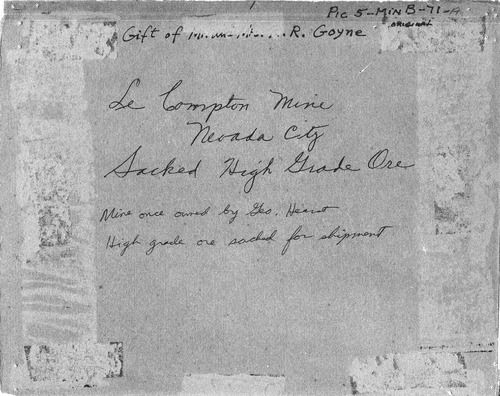 Pic 5-Min B-71-A
ORIGINAL
Gift of R. Goyne
Le Compton Mine
Nevada City
Sacked High Grade Ore
Mine once owned by Geo. Hearst
High grade ore sacked for shipment